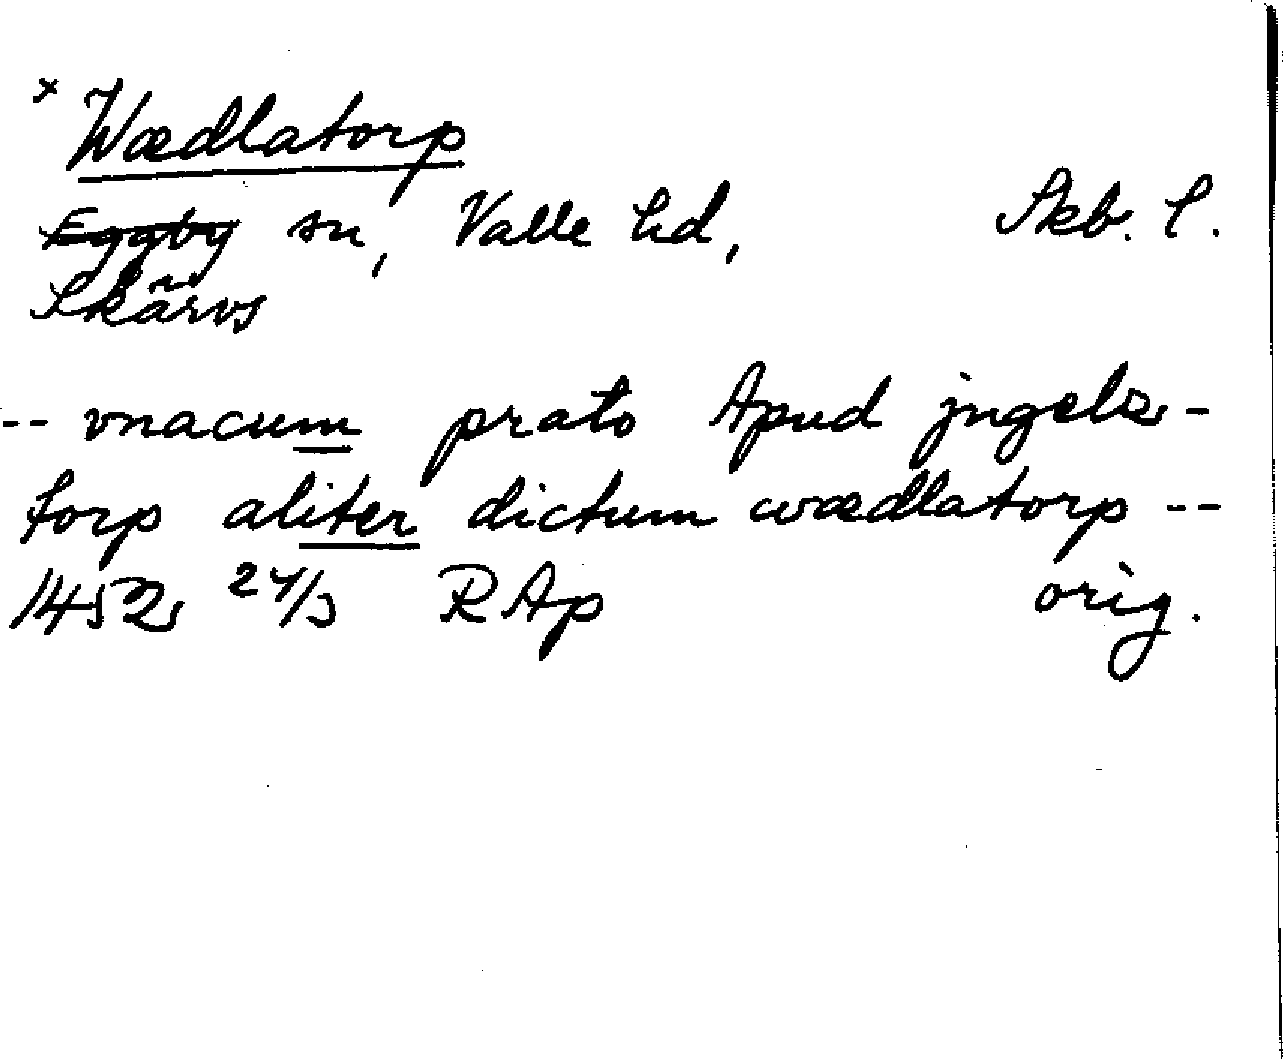 × Wædlatorp
Eggby sn, Valle hd, Skb. l.
Skärvs
-- vnacum prato Apud jngelz-
torp aliter dictum wædlatorp --
1452 24/3 RAp orig.